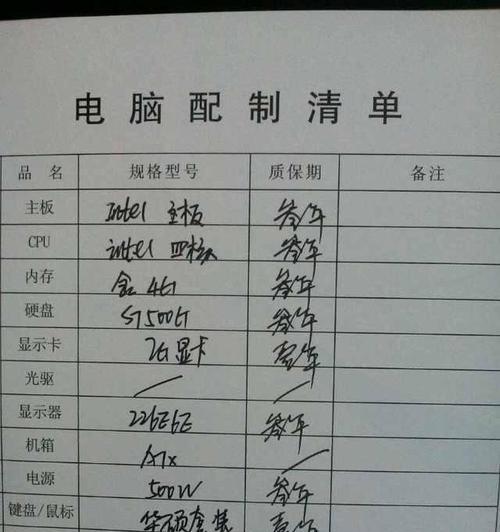 电脑配制清单
品 名 规格型号 质保期 备注
主板 Intel 主板 叁年
CPU intel 四核 叁年
内存 4G 叁年
硬盘 ST500G 叁年
显示卡 2G显卡 壹年
光驱 /
显示器 226E6E 叁年
机箱 ATX /
电源 500W 叁年
键盘/鼠标 华硕套装 壹年